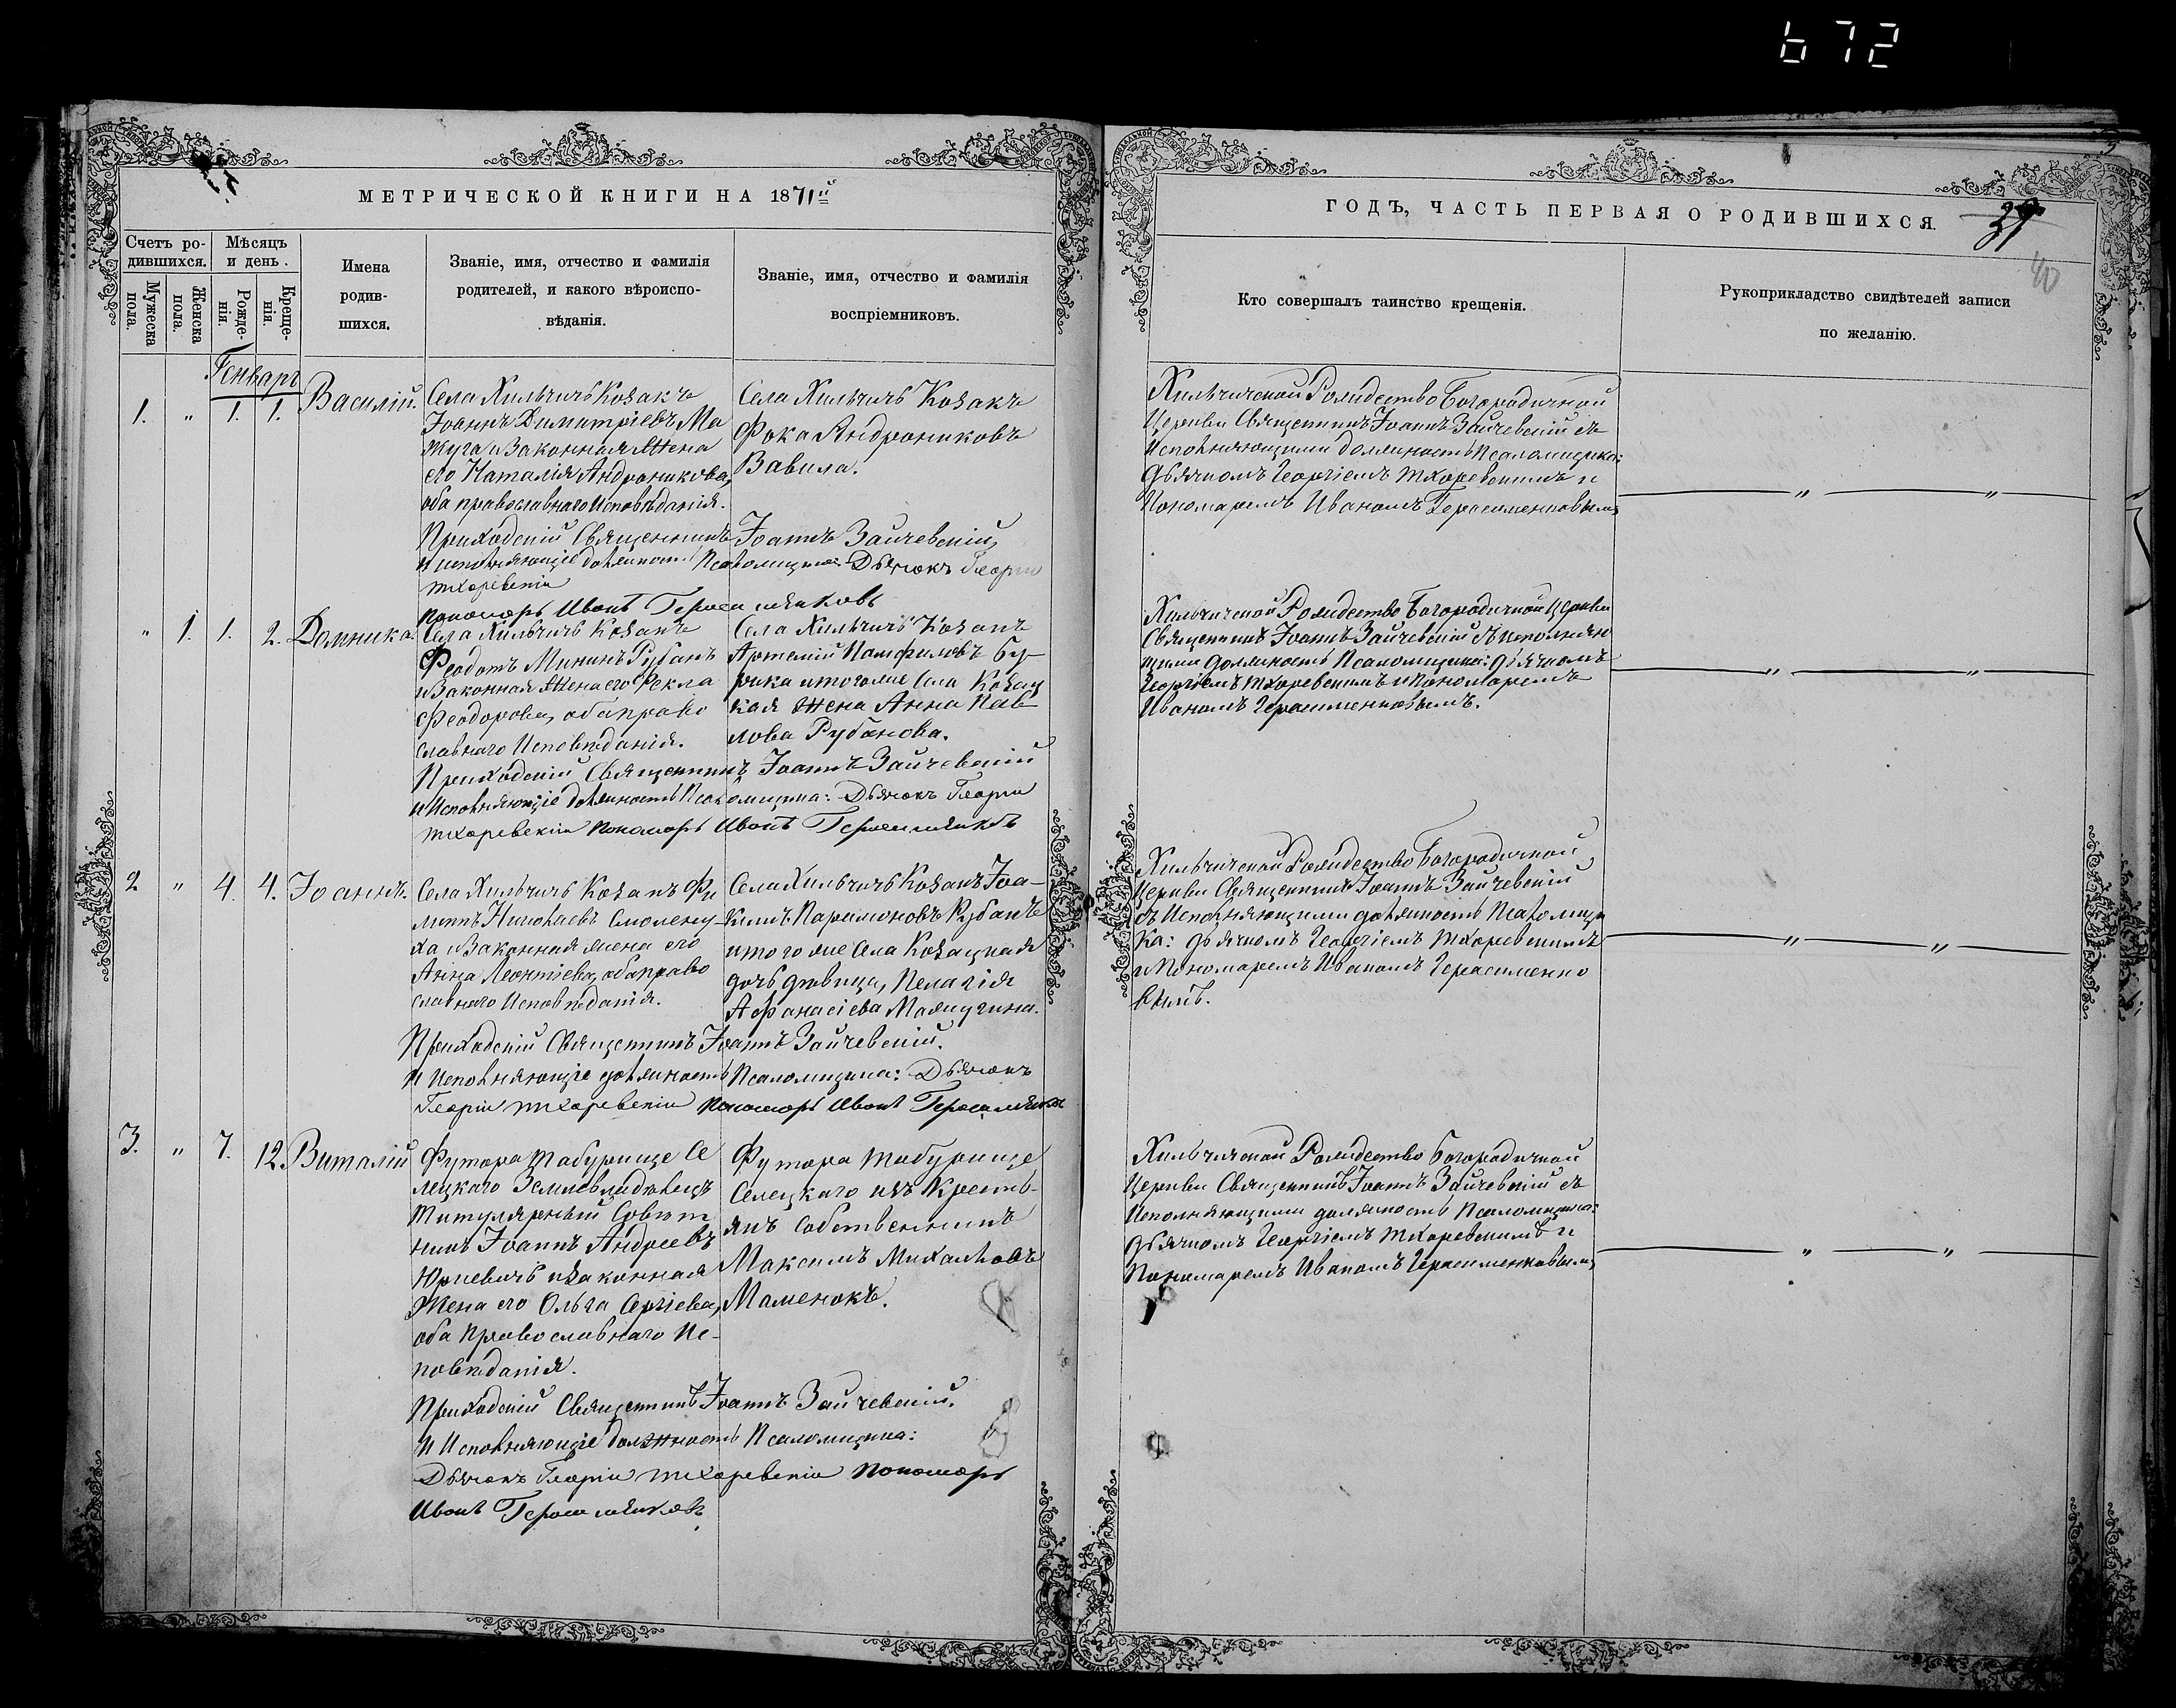 672
МЕТРИЧЕСКОЙ КНИГИ НА 1871й
Счетъ ро-
дившихся.
Мѣсяцъ
и день.
Мужеска
пола.
Женска
пола.
Рожде-
нія.
Креще-
нія.
Имена
родив-
шихся.
Званіе, имя, отчество и фамилія
родителей, и какого вѣроиспо-
вѣданія.
Званіе, имя, отчество и фамилія
воспріемниковъ.
Генварь
1. " 1. 1. Василій.
Села Хильчичь Козакъ
Іоаннъ Димитріевъ Ма
жуга и Законная Жена
его Наталія Андроникова,
оба православнаго Исповѣданія.
Села Хильчичь Козакъ
Фока Андрониковъ
Вавила.
Приходскій Священникъ Іоаннъ Зайчевскій,
и исполняющіе должность Псаломщика: Дьячокъ Георгій
Тхоревскій
Пономарь Иванъ Герасименковъ
" 1. 1. 2. Домника.
Села Хильчичь Козакъ
Феодотъ Мининъ Рубанъ
и Законная Жена его Фекла
Феодорова, оба право
славнаго Исповѣданія.
Села Хильчичь Козакъ
Артемій Памфиловъ Бу-
рика и того же Села Козац
кая Жена Анна Пав
лова Рубанова.
Приходскій Священникъ Іоаннъ Зайчевскій
и Исполняющіе должность Псаломщика: Дьячокъ Георгій
Тхоревскій Пономарь Иванъ Герасименковъ
2 " 4. 4. Іоаннъ.
Села Хильчичь Козакъ Фи
липпъ Николаевъ
ха и Законная жена его
Анна Леонтіева, оба право
славнаго Исповѣданія.
Села Хильчичь Козакъ Іоа-
кимъ Паримоновъ Рубанъ
и того же Села Козацкая
дочь дѣвица, Пелагія
Афанасіева Мажугина.
Приходскій Священникъ Іоаннъ Зайчевскій.
И Исполняющіе должность Псаломщика: Дьячокъ
Георгій Тхоревскій Пономарь Иванъ Герасименковъ
3. " 7. 12. Виталій
Футора Табурище Се
лецкаго Землевладѣлецъ
Титулярный Совѣт
никъ Іоаннъ Андреевъ
Юркевичь и Законная
Жена его Ольга Сергіева,
оба Православнаго Ис-
повѣданія.
Футора Табурище
Селецкаго изъ Кресть-
янъ Собственникъ
Максимъ Михайловъ
Маменокъ.
Приходскій Священникъ Іоаннъ Зайчевскій.
И Исполняющіе должность Псаломщика:
Дьячокъ Георгій Тхоревскій Пономарь
Иванъ Герасименковъ
ГОДЪ, ЧАСТЬ ПЕРВАЯ О РОДИВШИХСЯ.
39
40
Кто совершалъ таинство крещенія.
Рукоприкладство свидѣтелей записи
по желанію.
Хильчичской Рождество Богородичной
Церкви Священникъ Іоаннъ Зайчевскій съ
Исполняющими должность Псаломщика:
Дьячкомъ Георгіемъ Тхоревскимъ и
Пономаремъ Иваномъ Герасименковымъ
" "
Хильчичской Рождество Богородичной Церкви
Священникъ Іоаннъ Зайчевскій съ исполняю
щими должность Псаломщика: Дьячкомъ
Георгіемъ Тхоревскимъ и Пономаремъ
Иваномъ Герасименковымъ.
" "
Хильчичской Рождество Богородичной
Церкви Священникъ Іоаннъ Зайчевскій
съ Исполняющими должность Псаломщи
ка: Дьячкомъ Георгіемъ Тхоревскимъ
и Пономаремъ Иваномъ Герасименко
вымъ.
" "
Хильчичской Рождество Богородичной
Церкви Священникъ Іоаннъ Зайчевскій съ
Исполняющими должность Псаломщика:
Дьячкомъ Георгіемъ Тхоревскимъ и
Пономаремъ Иваномъ Герасименковымъ
" "